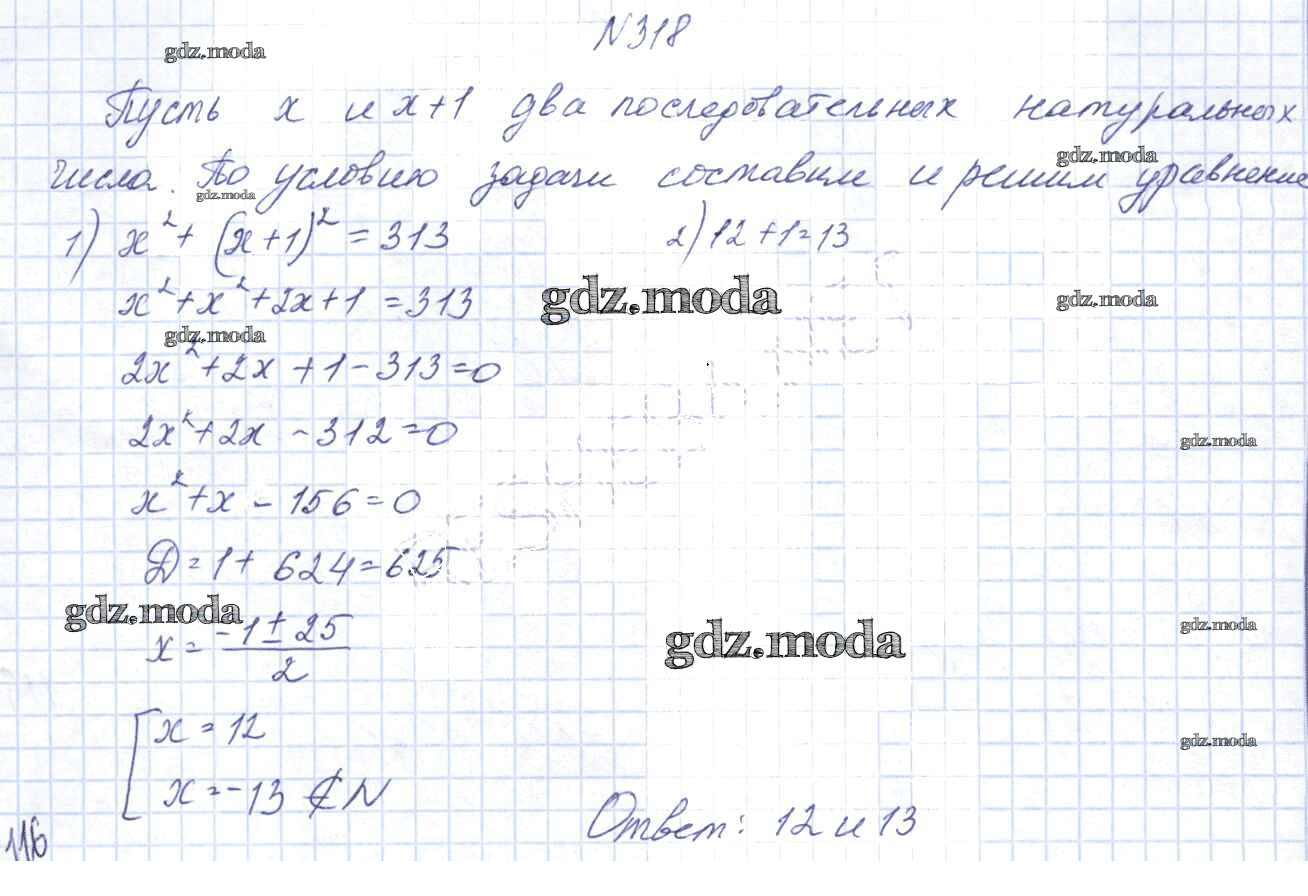 N318
gdz.moda
Пусть x и x+1 два последовательных натуральных
числа. По условию задачи составим и решим уравнение
gdz.moda
gdz.moda
1) x² + (x+1)² = 313
2) 12+1=13
x²+x²+2x+1 = 313
gdz.moda
gdz.moda
gdz.moda
2x²+2x+1-313=0
2x²+2x-312=0
gdz.moda
x²+x-156=0
D=1+624=625
gdz.moda
gdz.moda
gdz.moda
x = (-1±25)/2
[ x = 12
gdz.moda
x = -13 ∉ N
Ответ: 12 и 13
116